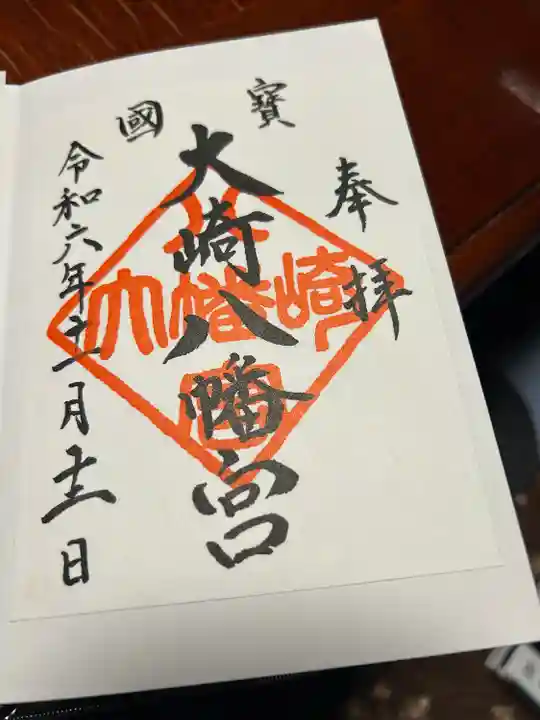 奉拝
國寶
大崎八幡宮
令和六年十一月十三日
大幡崎